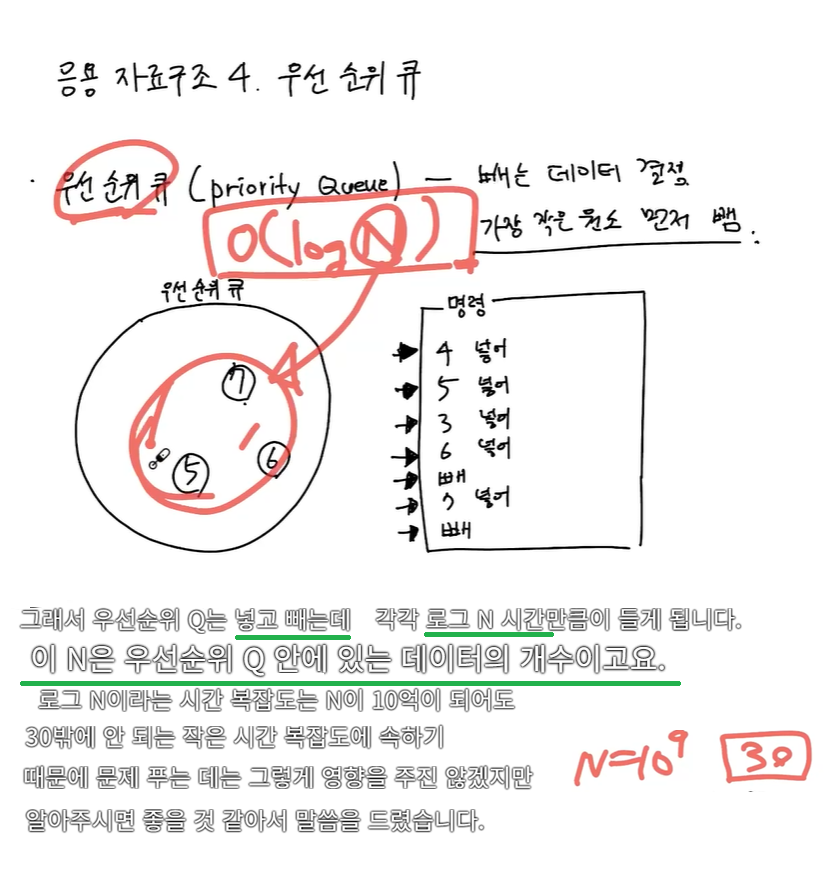 응용 자료구조 4. 우선 순위 큐
· 우선 순위 큐 (priority Queue) — 빼는 데이터 결정
가장 작은 원소 먼저 뺌.
O(log N)
우선 순위 큐
7
5
6
명령
4 넣어
5 넣어
3 넣어
6 넣어
빼
7 넣어
빼
그래서 우선순위 Q는 넣고 빼는데 각각 로그 N 시간만큼이 들게 됩니다.
이 N은 우선순위 Q 안에 있는 데이터의 개수이고요.
로그 N이라는 시간 복잡도는 N이 10억이 되어도
30밖에 안 되는 작은 시간 복잡도에 속하기
때문에 문제 푸는 데는 그렇게 영향을 주진 않겠지만
알아주시면 좋을 것 같아서 말씀을 드렸습니다.
N=10⁹ 30